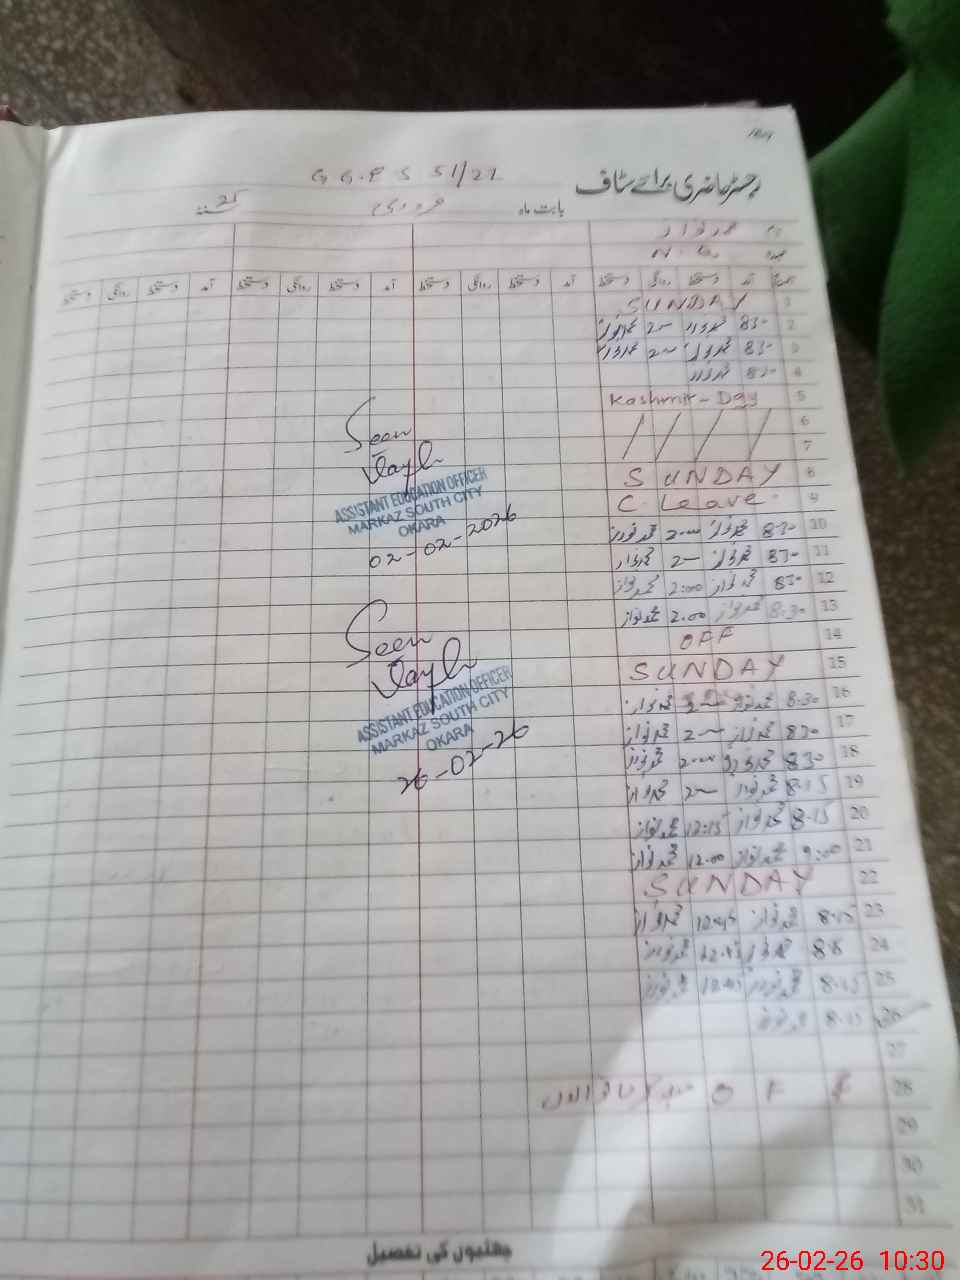 رجسٹر حاضری برائے سٹاف
G G.P S 51/2L
بابت ماہ فروری
محمد نواز
تاریخ آمد دستخط روانگی دستخط آمد دستخط روانگی دستخط آمد دستخط روانگی دستخط آمد دستخط روانگی دستخط
1 SUNDAY
2 830 محمد نواز 2 محمد نواز
3 830 محمد نواز 2 محمد نواز
4 830 محمد نواز
5 Kashmir - Day
6
7
8 SUNDAY
9 C. Leave.
10 830 محمد نواز 2 محمد نواز
11 830 محمد نواز 2 محمد نواز
12 830 محمد نواز 2:00 محمد نواز
13 8.30 محمد نواز 2.00 محمد نواز
14 OFF
15 SUNDAY
16 8.30 محمد نواز 2 محمد نواز
17 830 محمد نواز 2 محمد نواز
18 830 محمد نواز 2 محمد نواز
19 8.15 محمد نواز 2 محمد نواز
20 8.15 محمد نواز 12:15 محمد نواز
21 9:00 محمد نواز 12.00 محمد نواز
22 SUNDAY
23 8.15 محمد نواز 12.45 محمد نواز
24 محمد نواز 12.45 محمد نواز
25 8.15 محمد نواز 12.45 محمد نواز
26 8.15 محمد نواز
27
28
29
30
31
Seen
ASSISTANT EDUCATION OFFICER
MARKAZ SOUTH CITY
OKARA
02-02-2026
Seen
ASSISTANT EDUCATION OFFICER
MARKAZ SOUTH CITY
OKARA
26-02-26
چھٹیوں کی تفصیل
26-02-26 10:30